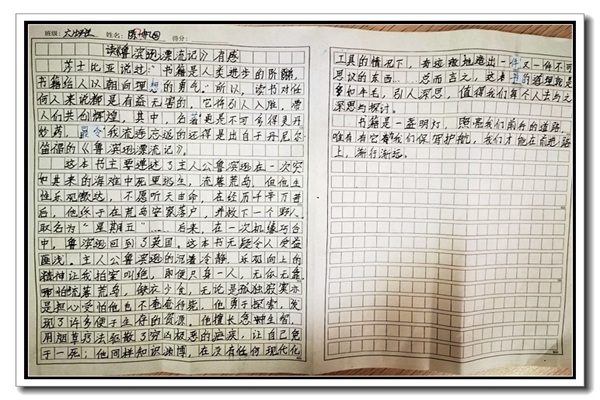 班级: 六 班 姓名: 得分:
读《鲁滨逊漂流记》有感
莎士比亚说过:"书籍是人类进步的阶梯,
书籍给人以朝向理想的勇气。"所以,读书对任
何人来说都是有益无害的,它将引人入胜,带
人们共创辉煌,其中,名著更是不可多得灵丹
妙药,最令我流连忘返的还得是出自于丹尼尔
笛福的《鲁滨逊漂流记》。
这本书主要讲述了主人公鲁滨逊在一次突
如其来的海难中死里逃生,流落荒岛,但他生
性乐观豁达,不愿听天由命,在经历千辛万苦
后,他终于在荒岛安家落户,并救下一个野人,
取名为"星期五"……后来,在一次机缘巧合
中,鲁滨逊回到了英国。这本书无疑令人受益
匪浅。主人公鲁滨逊的沉着冷静、乐观向上的
精神让我拍案叫绝,即便只身一人,无依无靠
哪怕流落荒岛,缺衣少食,无论是孤独寂寞亦
是担心受怕他也不卷卷待毙,他勇于探索,发
现了许多便于生存的资源。他擅长急中生智,
用烟草疗法驱散了穷凶极恶的疟疾,让自己免
于一死;他同样知识渊博,在没有任何现代化
工具的情况下,奇迹般地造出一件又一件不可
思议的东西……总而言之,这本书的道理就是
多如牛毛,引人深思,值得我们每个人去与之
深思与探讨。
书籍是一盏明灯,照亮我们前行的道路,
唯有有它为我们保驾护航,我们才能在前进路
上,渐行渐远。